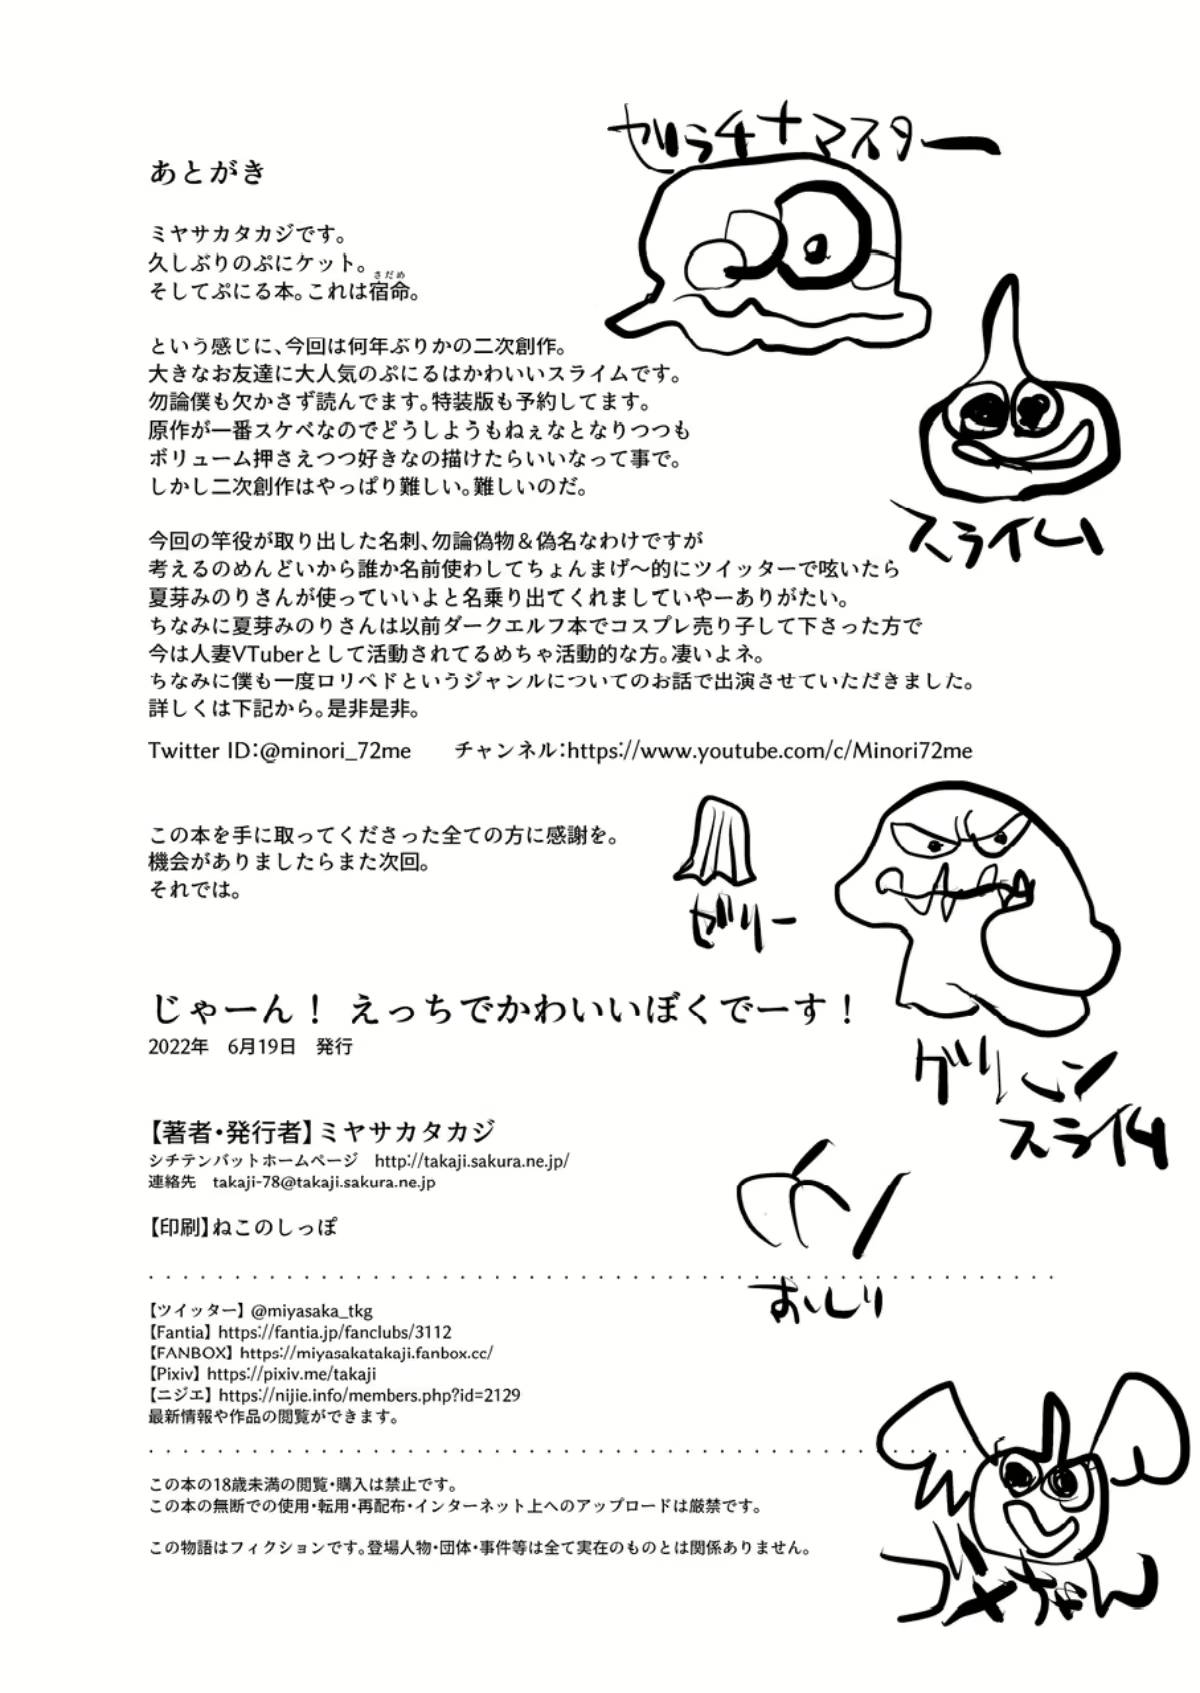 ゼラチナマスター
あとがき
ミヤサカタカジです。
久しぶりのぷにケット。
そしてぷにる本。これは宿命。
さだめ
という感じに、今回は何年ぶりかの二次創作。
大きなお友達に大人気のぷにるはかわいいスライムです。
勿論僕も欠かさず読んでます。特装版も予約してます。
原作が一番スケベなのでどうしようもねぇなとなりつつも
ボリューム押さえつつ好きなの描けたらいいなって事で。
しかし二次創作はやっぱり難しい。難しいのだ。
スライム
今回の竿役が取り出した名刺、勿論偽物＆偽名なわけですが
考えるのめんどいから誰か名前使わしてちょんまげ～的にツイッターで呟いたら
夏芽みのりさんが使っていいよと名乗り出てくれましていやーありがたい。
ちなみに夏芽みのりさんは以前ダークエルフ本でコスプレ売り子して下さった方で
今は人妻VTuberとして活動されてるめちゃ活動的な方。凄いよネ。
ちなみに僕も一度ロリベドというジャンルについてのお話で出演させていただきました。
詳しくは下記から。是非是非。
Twitter ID：@minori_72me　　チャンネル：https://www.youtube.com/c/Minori72me
この本を手に取ってくださった全ての方に感謝を。
機会がありましたらまた次回。
それでは。
ゼリー
じゃーん！ えっちでかわいいぼくでーす！
2022年　6月19日　発行
グリーン
スライム
【著者・発行者】ミヤサカタカジ
シチテンバットホームページ　http://takaji.sakura.ne.jp/
連絡先　takaji-78@takaji.sakura.ne.jp
【印刷】ねこのしっぽ
おしり
【ツイッター】@miyasaka_tkg
【Fantia】https://fantia.jp/fanclubs/3112
【FANBOX】https://miyasakatakaji.fanbox.cc/
【Pixiv】https://pixiv.me/takaji
【ニジエ】https://nijie.info/members.php?id=2129
最新情報や作品の閲覧ができます。
この本の18歳未満の閲覧・購入は禁止です。
この本の無断での使用・転用・再配布・インターネット上へのアップロードは厳禁です。
この物語はフィクションです。登場人物・団体・事件等は全て実在のものとは関係ありません。
ゴメちゃん